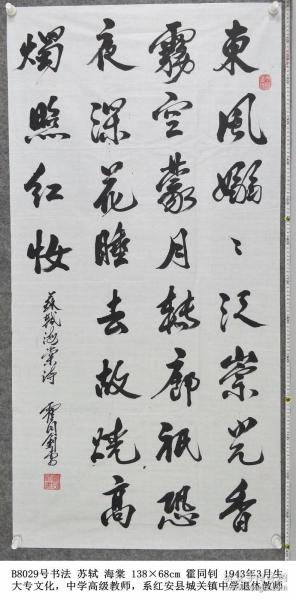 東風嫋〻泛崇光香
霧空蒙月轉廊祇恐
夜深花睡去故燒高
燭照红妝
蘇軾海棠詩
霍同釗書
B8029号书法 苏轼 海棠 138×68cm 霍同钊 1943年3月生
大专文化，中学高级教师，系红安县城关镇中学退休教师